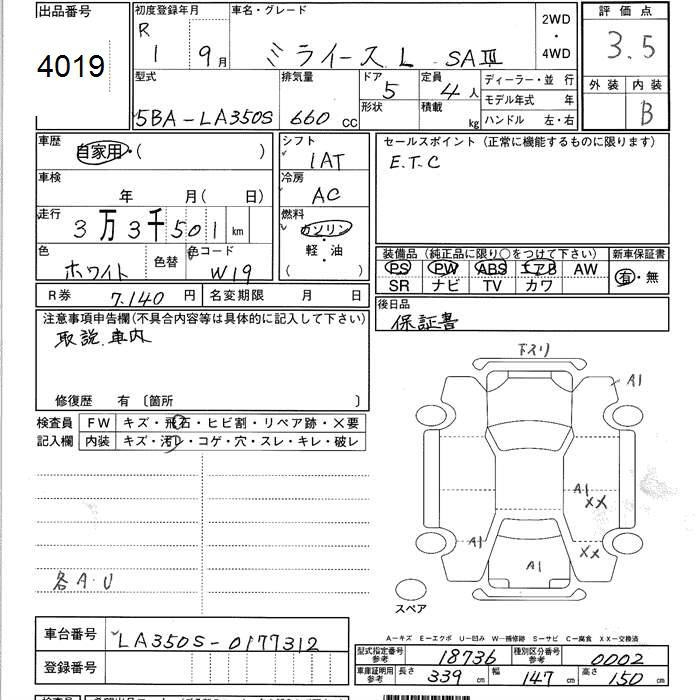 出品番号
4019
初度登録年月
R
1 9月
車名・グレード
ミライース L SAⅢ
2WD
・
4WD
評価点
3.5
外装 内装
B
型式
5BA-LA350S
排気量
660 cc
ドア
5
形状
定員
4人
積載
kg
ディーラー・並 行
モデル年式 年
ハンドル 左・右
車歴
自家用・( )
車検
年 月(日)
走行
3万3千501km
色
ホワイト
色替
色コード
W19
シフト
IAT
冷房
AC
燃料
ガソリン
・
軽・油
( )
セールスポイント(正常に機能するものに限ります)
E.T.C
装備品(純正品に限り○をつけて下さい)
PS PW ABS エアB AW
SR ナビ TV カワ
新車保証書
有・無
R券 7.140円
名変期限 月 日
後日品
保証書
注意事項申告欄(不具合内容等は具体的に記入して下さい)
取説.車内
修復歴 有〔箇所 〕
検査員
記入欄
FW キズ・飛石・ヒビ割・リペア跡・×要
内装 キズ・汚レ・コゲ・穴・スレ・キレ・破レ
下スリ
A1
A1
XX
A1
XX
A1
3.5
各A.U
スペア
A-キズ E-エクボ U-凹み W-補修跡 S-サビ C-腐食 XX-交換済
車台番号
LA350S-0177312
登録番号
型式指定番号
参考
18736
種別区分番号
参考
0002
車庫証明用
参考
長さ 339cm
幅 147cm
高さ 150cm